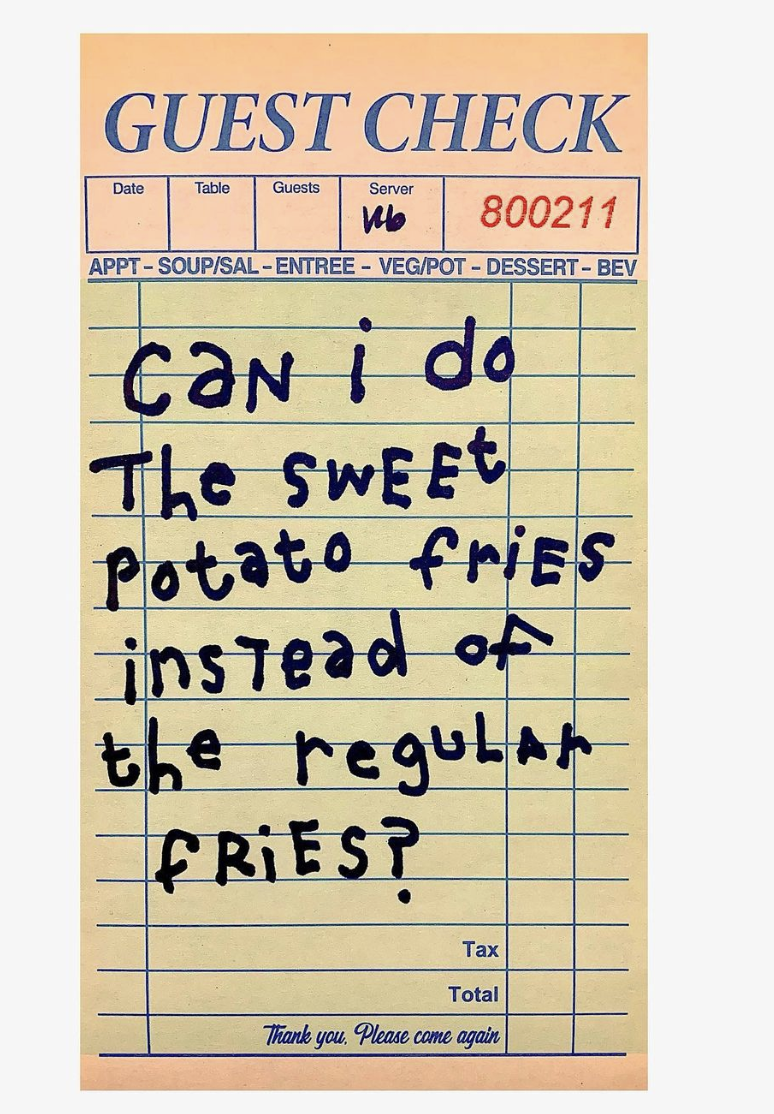 GUEST CHECK
Date Table Guests Server 800211
APPT - SOUP/SAL - ENTREE - VEG/POT - DESSERT - BEV
CaN i do
The SWEEt
Potato friES
insTead of
the reguLAr
fRiES?
Tax
Total
Thank you. Please come again